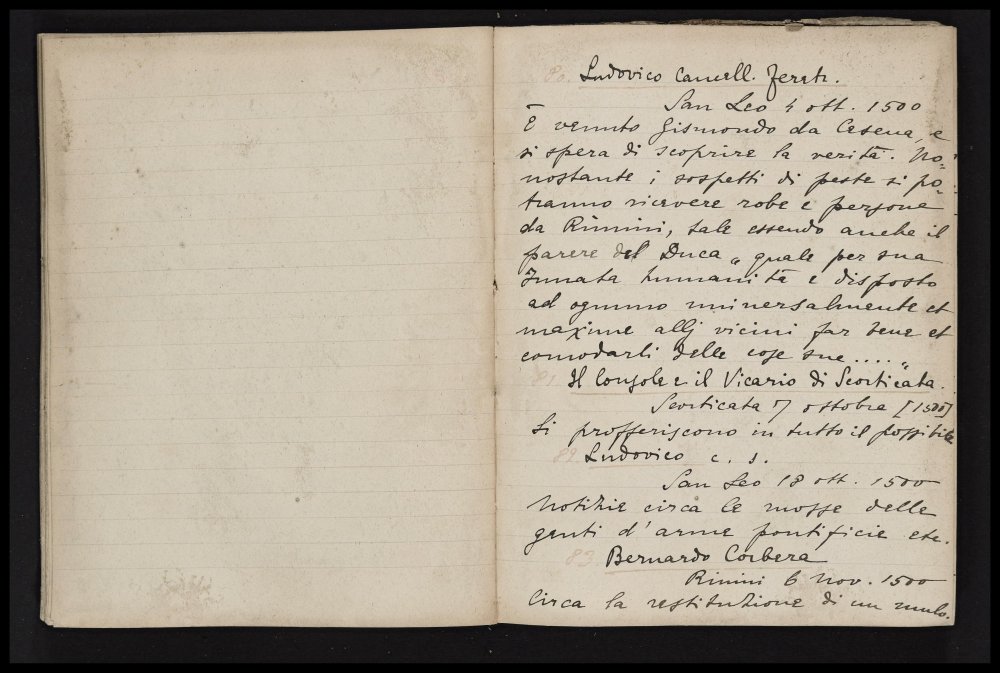 80. Ludovico Cancell. Feretr.
San Leo 4 ott. 1500
È venuto Gismondo da Cesena, e
si spera di scoprire la verità. No=
nostante i sospetti di peste si po=
tranno ricevere robe e persone
da Rimini, tale essendo anche il
parere del Duca „ quale per sua
innata humanità è disposto
ad ognuno universalmente et
maxime allj vicini far bene et
comodarli delle cose sue .... „
81. Il Console e il Vicario di Scorticata.
Scorticata 7 ottobre [1500]
Si profferiscono in tutto il possibile
82. Ludovico c. s.
San Leo 18 ott. 1500
Notizie circa le mosse delle
genti d'arme pontificie etc.
83. Bernardo Corbera
Rimini 6 nov. 1500
Circa la restituzione di un mulo.